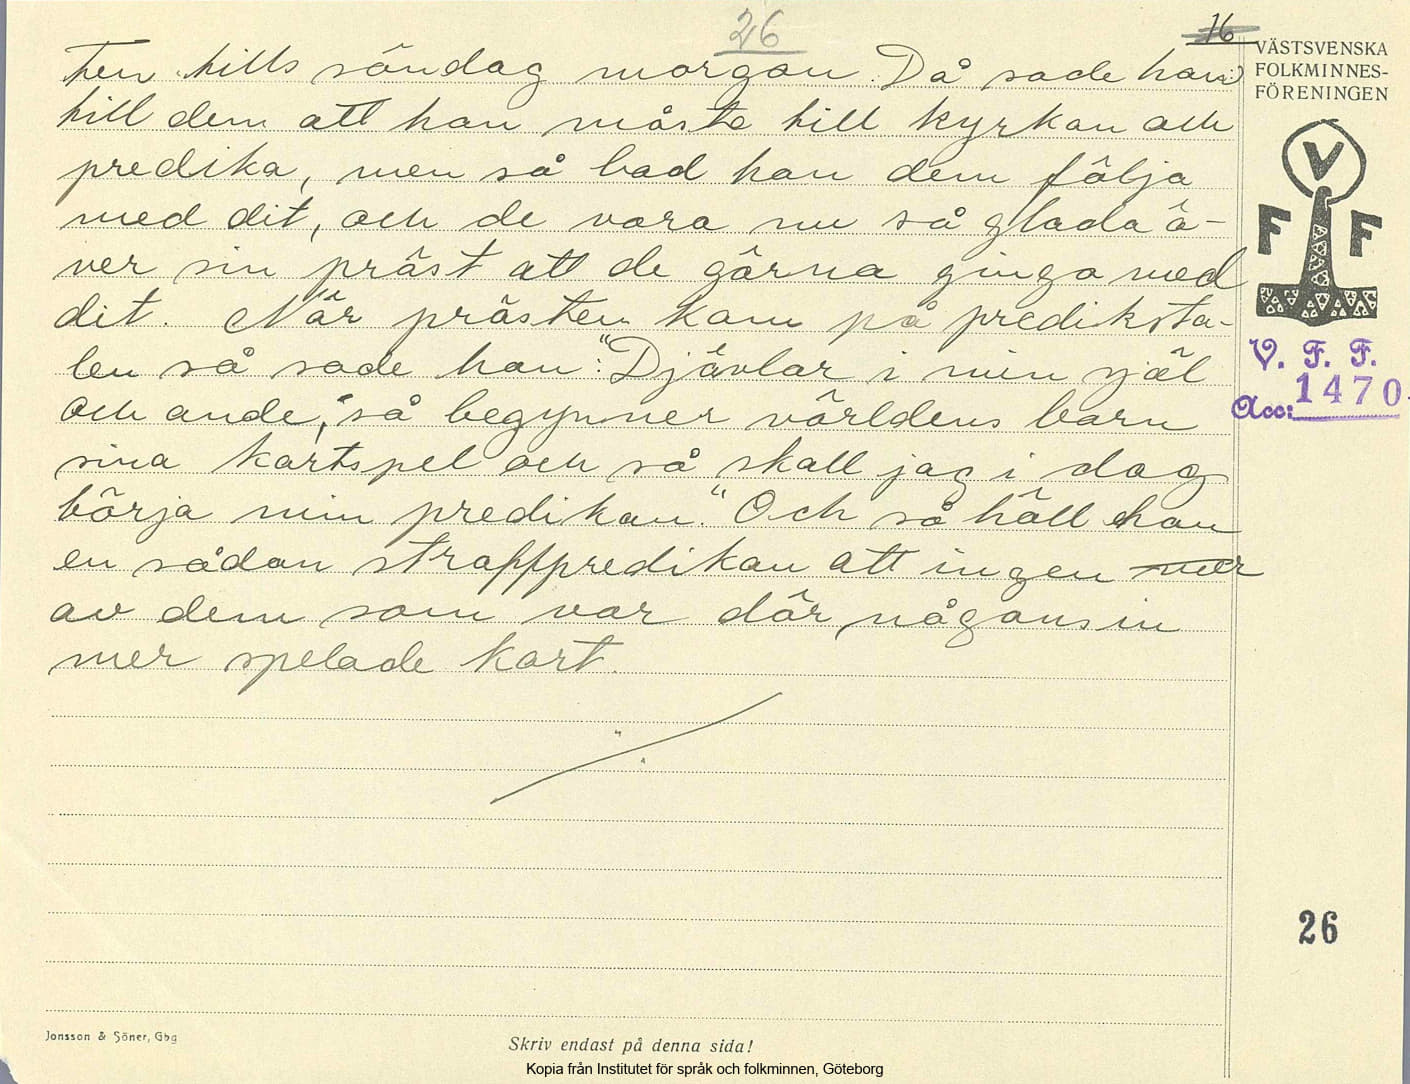 26
16
ten tills söndag morgon. Då sade han
till dem att han måste till kyrkan och
predika, men så bad han dem följa
med dit, och de voro nu så glada ö-
ver sin präst att de gärna gingo med
dit. När prästen kom på prediksto-
len så sade han: "Djävlar i min själ
och ande, så begynner världens barn
sina kortspel och så skall jag i dag
börja min predikan." Och så höll han
en sådan straffpredikan att ingen mer
av dem som var där någonsin
mer spelade kort.
VÄSTSVENSKA
FOLKMINNES-
FÖRENINGEN
V
F F
V. F. F.
Acc: 1470
26
Jonsson & Söner, Gbg
Skriv endast på denna sida!
Kopia från Institutet för språk och folkminnen, Göteborg